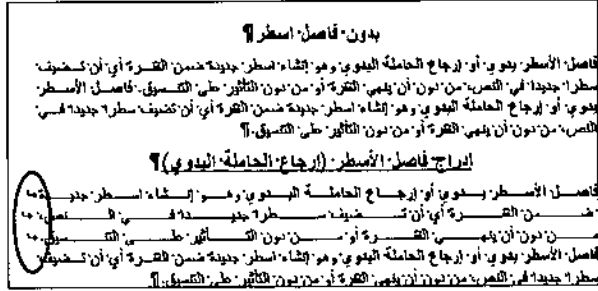 بدون فاصل اسطر ¶
فاصل الأسطر يدوي أو إرجاع الحاملة اليدوي وهو إنشاء اسطر جديدة ضمن الفقرة أي أن تضيف
سطرا جديدا في النص، من دون أن ينهي الفقرة أو من دون التأثير على التنسيق. فاصل الأسطر
يدوي أو إرجاع الحاملة اليدوي وهو إنشاء اسطر جديدة ضمن الفقرة أي أن تضيف سطرا جديدا في
النص، من دون أن ينهي الفقرة أو من دون التأثير على التنسيق. ¶
إدراج فاصل الأسطر (إرجاع الحاملة اليدوي) ¶
فاصل الأسطر يدوي أو إرجاع الحاملة اليدوي وهو إنشاء اسطر جديدة
ضمن الفقرة أي أن تضيف سطرا جديدا في النص،
من دون أن ينهي الفقرة أو من دون التأثير على التنسيق.
فاصل الأسطر يدوي أو إرجاع الحاملة اليدوي وهو إنشاء اسطر جديدة ضمن الفقرة أي أن تضيف
سطرا جديدا في النص، من دون أن ينهي الفقرة أو من دون التأثير على التنسيق. ¶